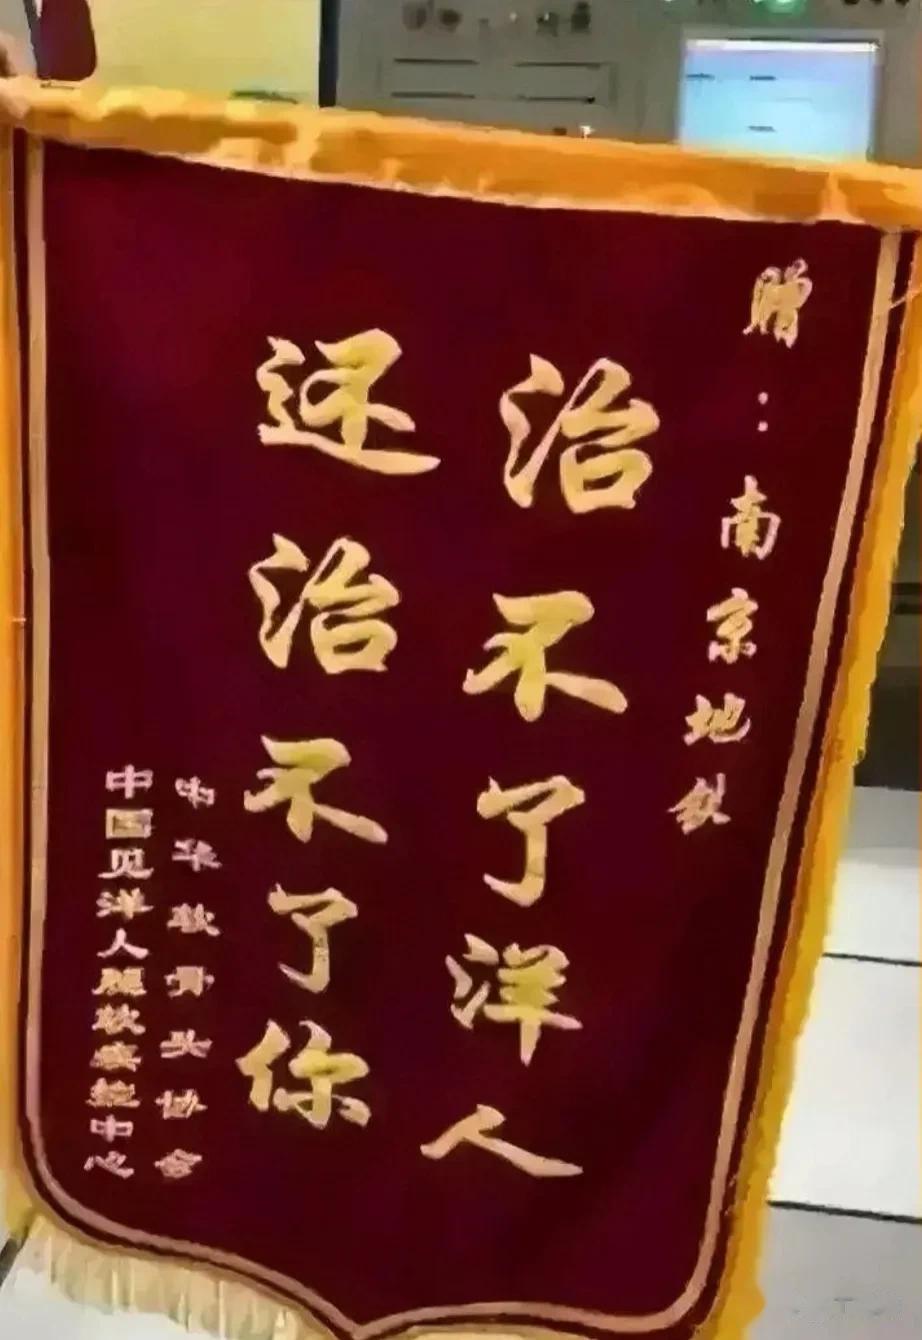 赠：南京地铁
治不了洋人
还治不了你
中华软骨头协会
中国见洋人腿软疾控中心